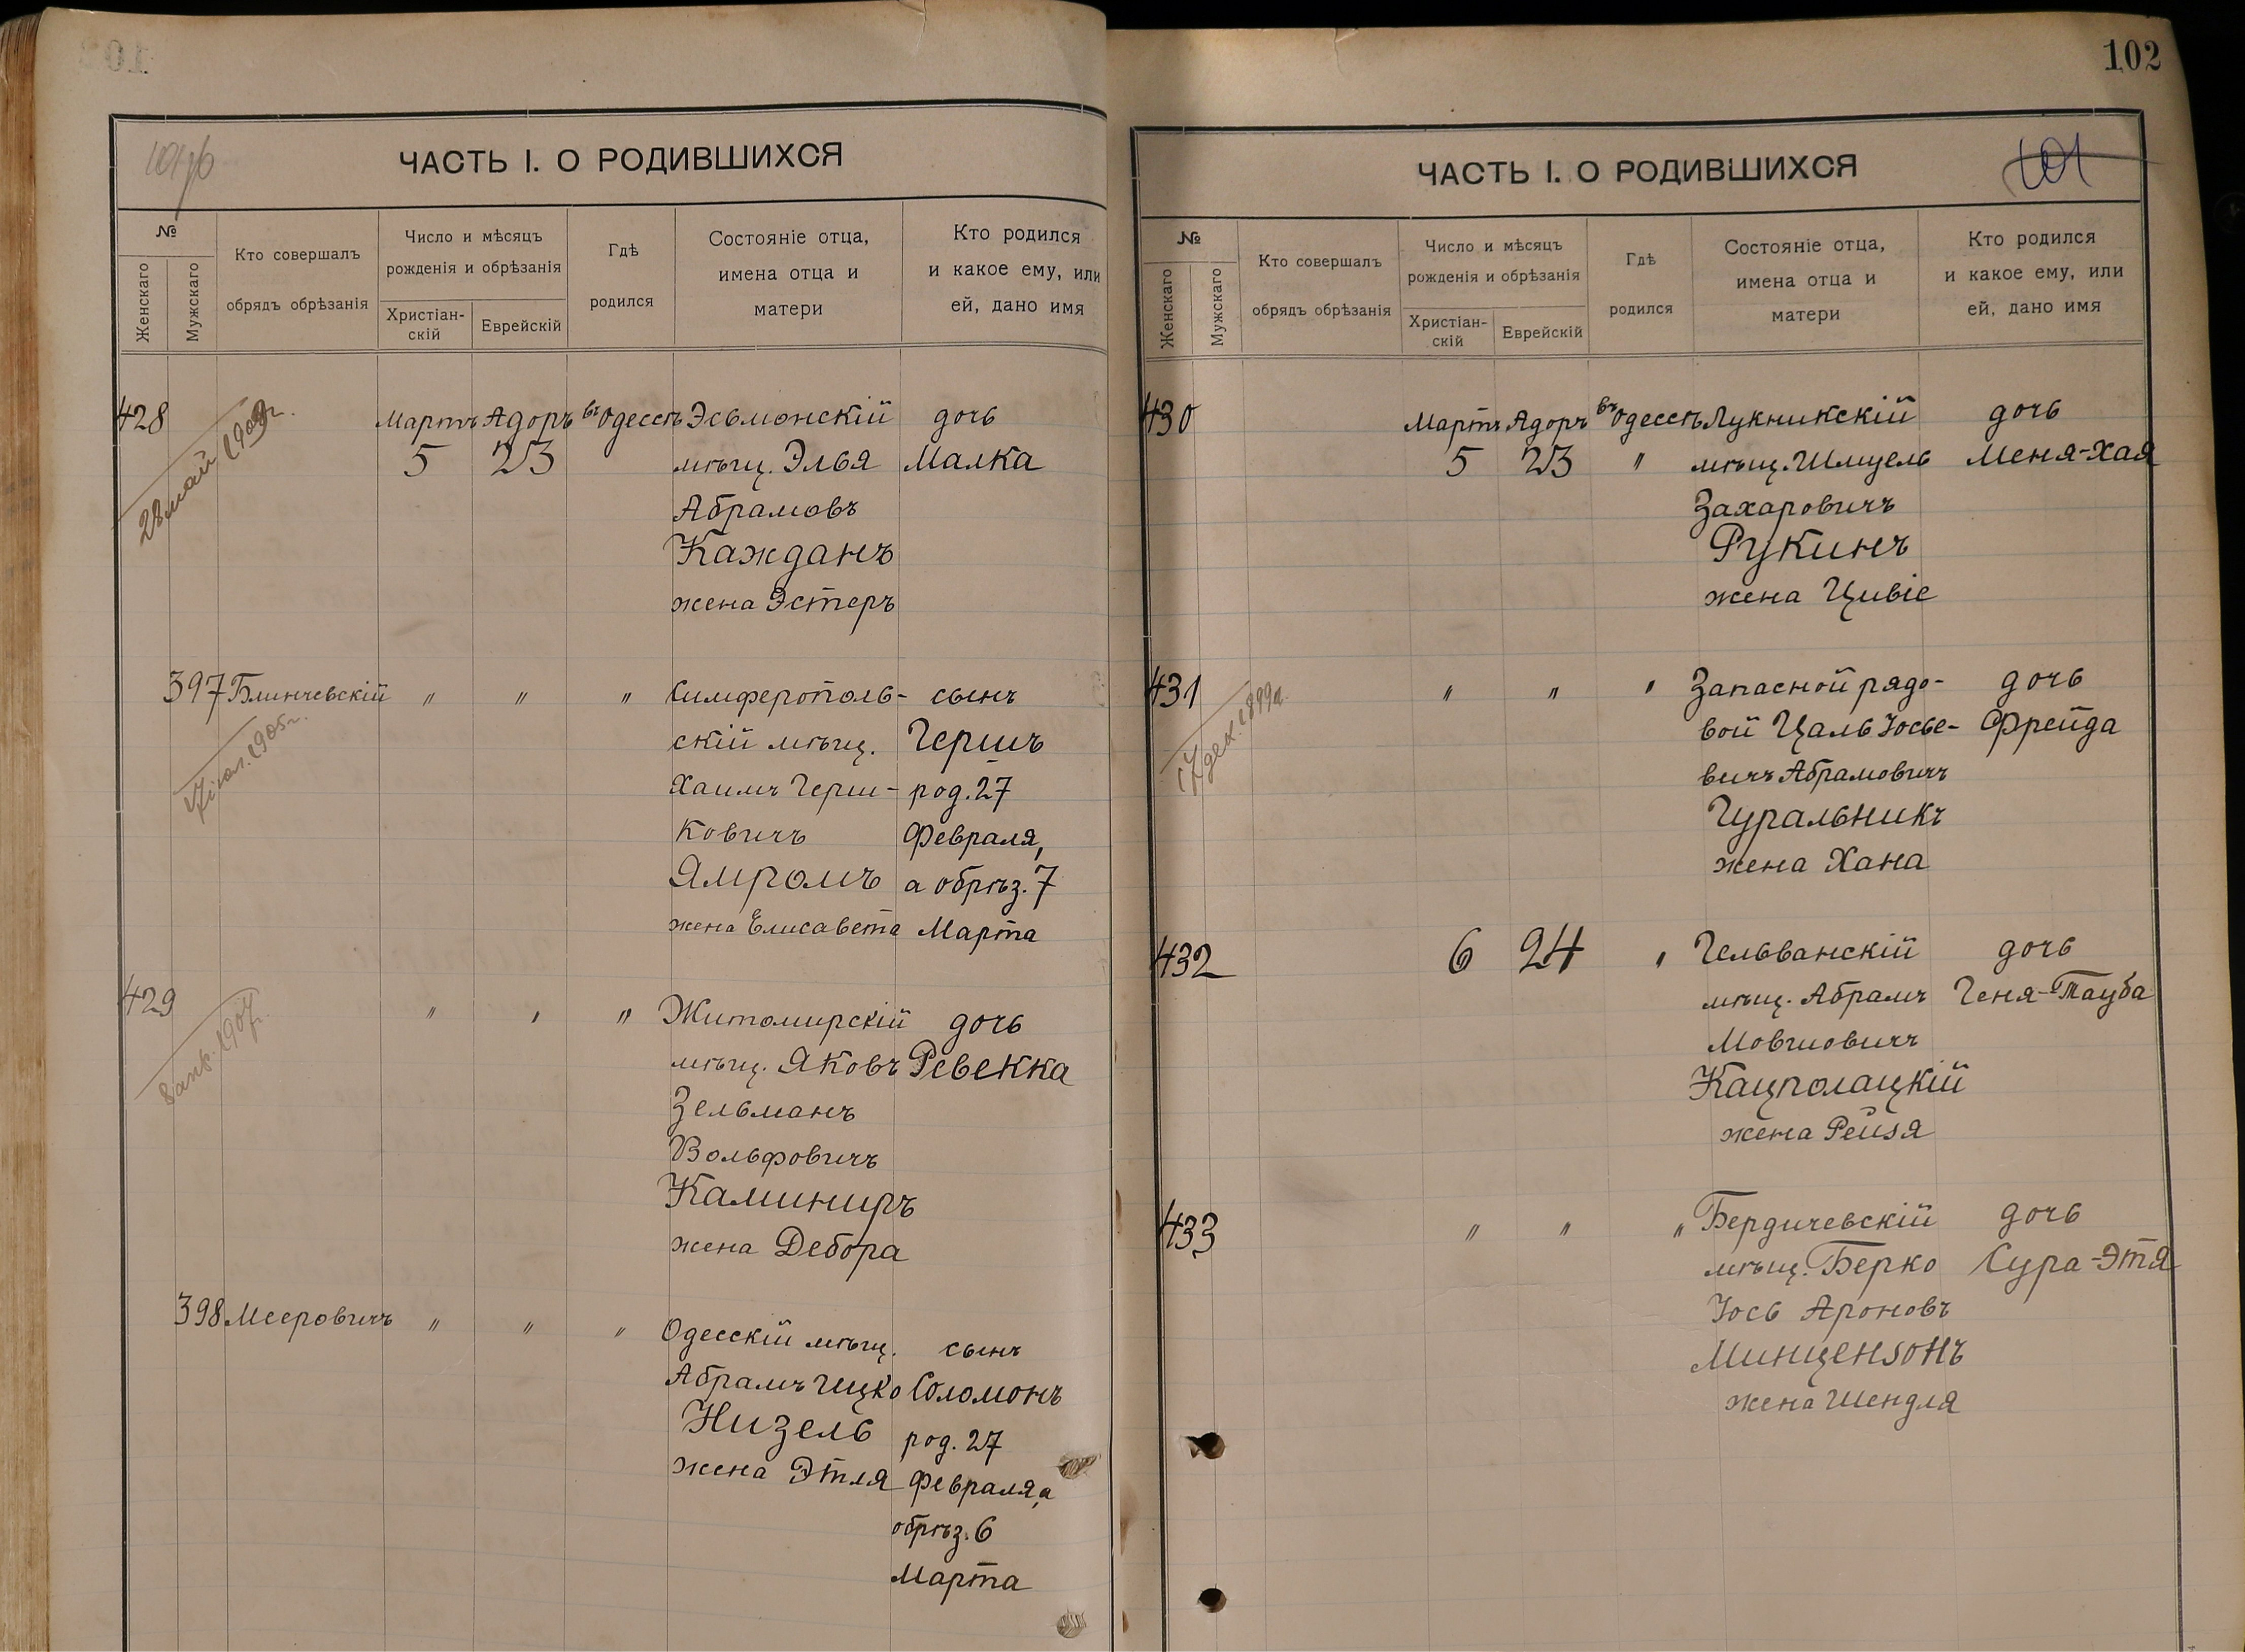 102
ЧАСТЬ I. О РОДИВШИХСЯ
№
Женскаго
Мужскаго
Кто совершалъ
обрядъ обрѣзанія
Число и мѣсяцъ
рожденія и обрѣзанія
Христіан-
скій
Еврейскій
Гдѣ
родился
Состояніе отца,
имена отца и
матери
Кто родился
и какое ему, или
ей, дано имя
428 Мартъ Адоръ въ Одессѣ Эсьмонскій дочь
5 23 мѣщ. Элья Малка
Абрамовъ
Кажданъ
жена Эстеръ
397 Блинчевскій " " " Симферополь- сынъ
скій мѣщ. Гершъ
Хаимъ Герш- род. 27
ковичъ Февраля,
Ямромъ а обрѣз. 7
жена Елисавета Марта
429 " " " Житомирскій дочь
мѣщ. Яковъ Ревекка
Зельманъ
Вольфовичъ
Каминиръ
жена Дебора
8 апр. 1907г.
398 Мееровичъ " " " Одесскій мѣщ. сынъ
Абрамъ Ицко Соломонъ
Низель род. 27
жена Этля Февраля, а
обрѣз. 6
Марта
ЧАСТЬ I. О РОДИВШИХСЯ
101
№
Женскаго
Мужскаго
Кто совершалъ
обрядъ обрѣзанія
Число и мѣсяцъ
рожденія и обрѣзанія
Христіан-
скій
Еврейскій
Гдѣ
родился
Состояніе отца,
имена отца и
матери
Кто родился
и какое ему, или
ей, дано имя
430 Мартъ Адоръ въ Одессѣ Лукникскій дочь
5 23 " мѣщ. Шмуель Меня-Хая
Захаровичъ
Рукинъ
жена Цивіе
431 " " " Запасной рядо- дочь
вой Цаль Іосье- Фрейда
вичъ Абрамовичъ
Гуральникъ
жена Хана
17 дек. 1899г.
432 6 24 " Гельванскій дочь
мѣщ. Абрамъ Геня-Тауба
Мовшовичъ
Кацполацкій
жена Рейзя
433 " " " Бердичевскій дочь
мѣщ. Берко Сура-Этя
Іось Ароновъ
Минцензонъ
жена Шендля